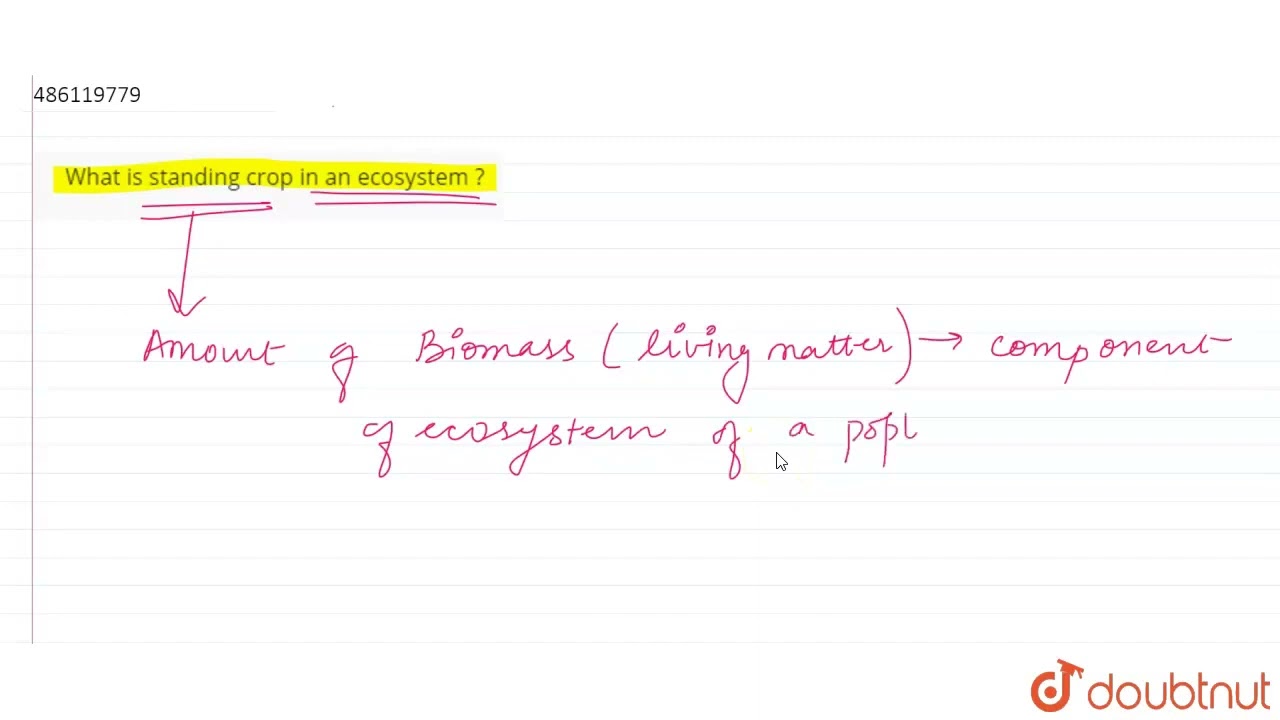 486119779
What is standing crop in an ecosystem ?
Amount of Biomass (living matter) → component
of ecosystem of a popl
doubtnut